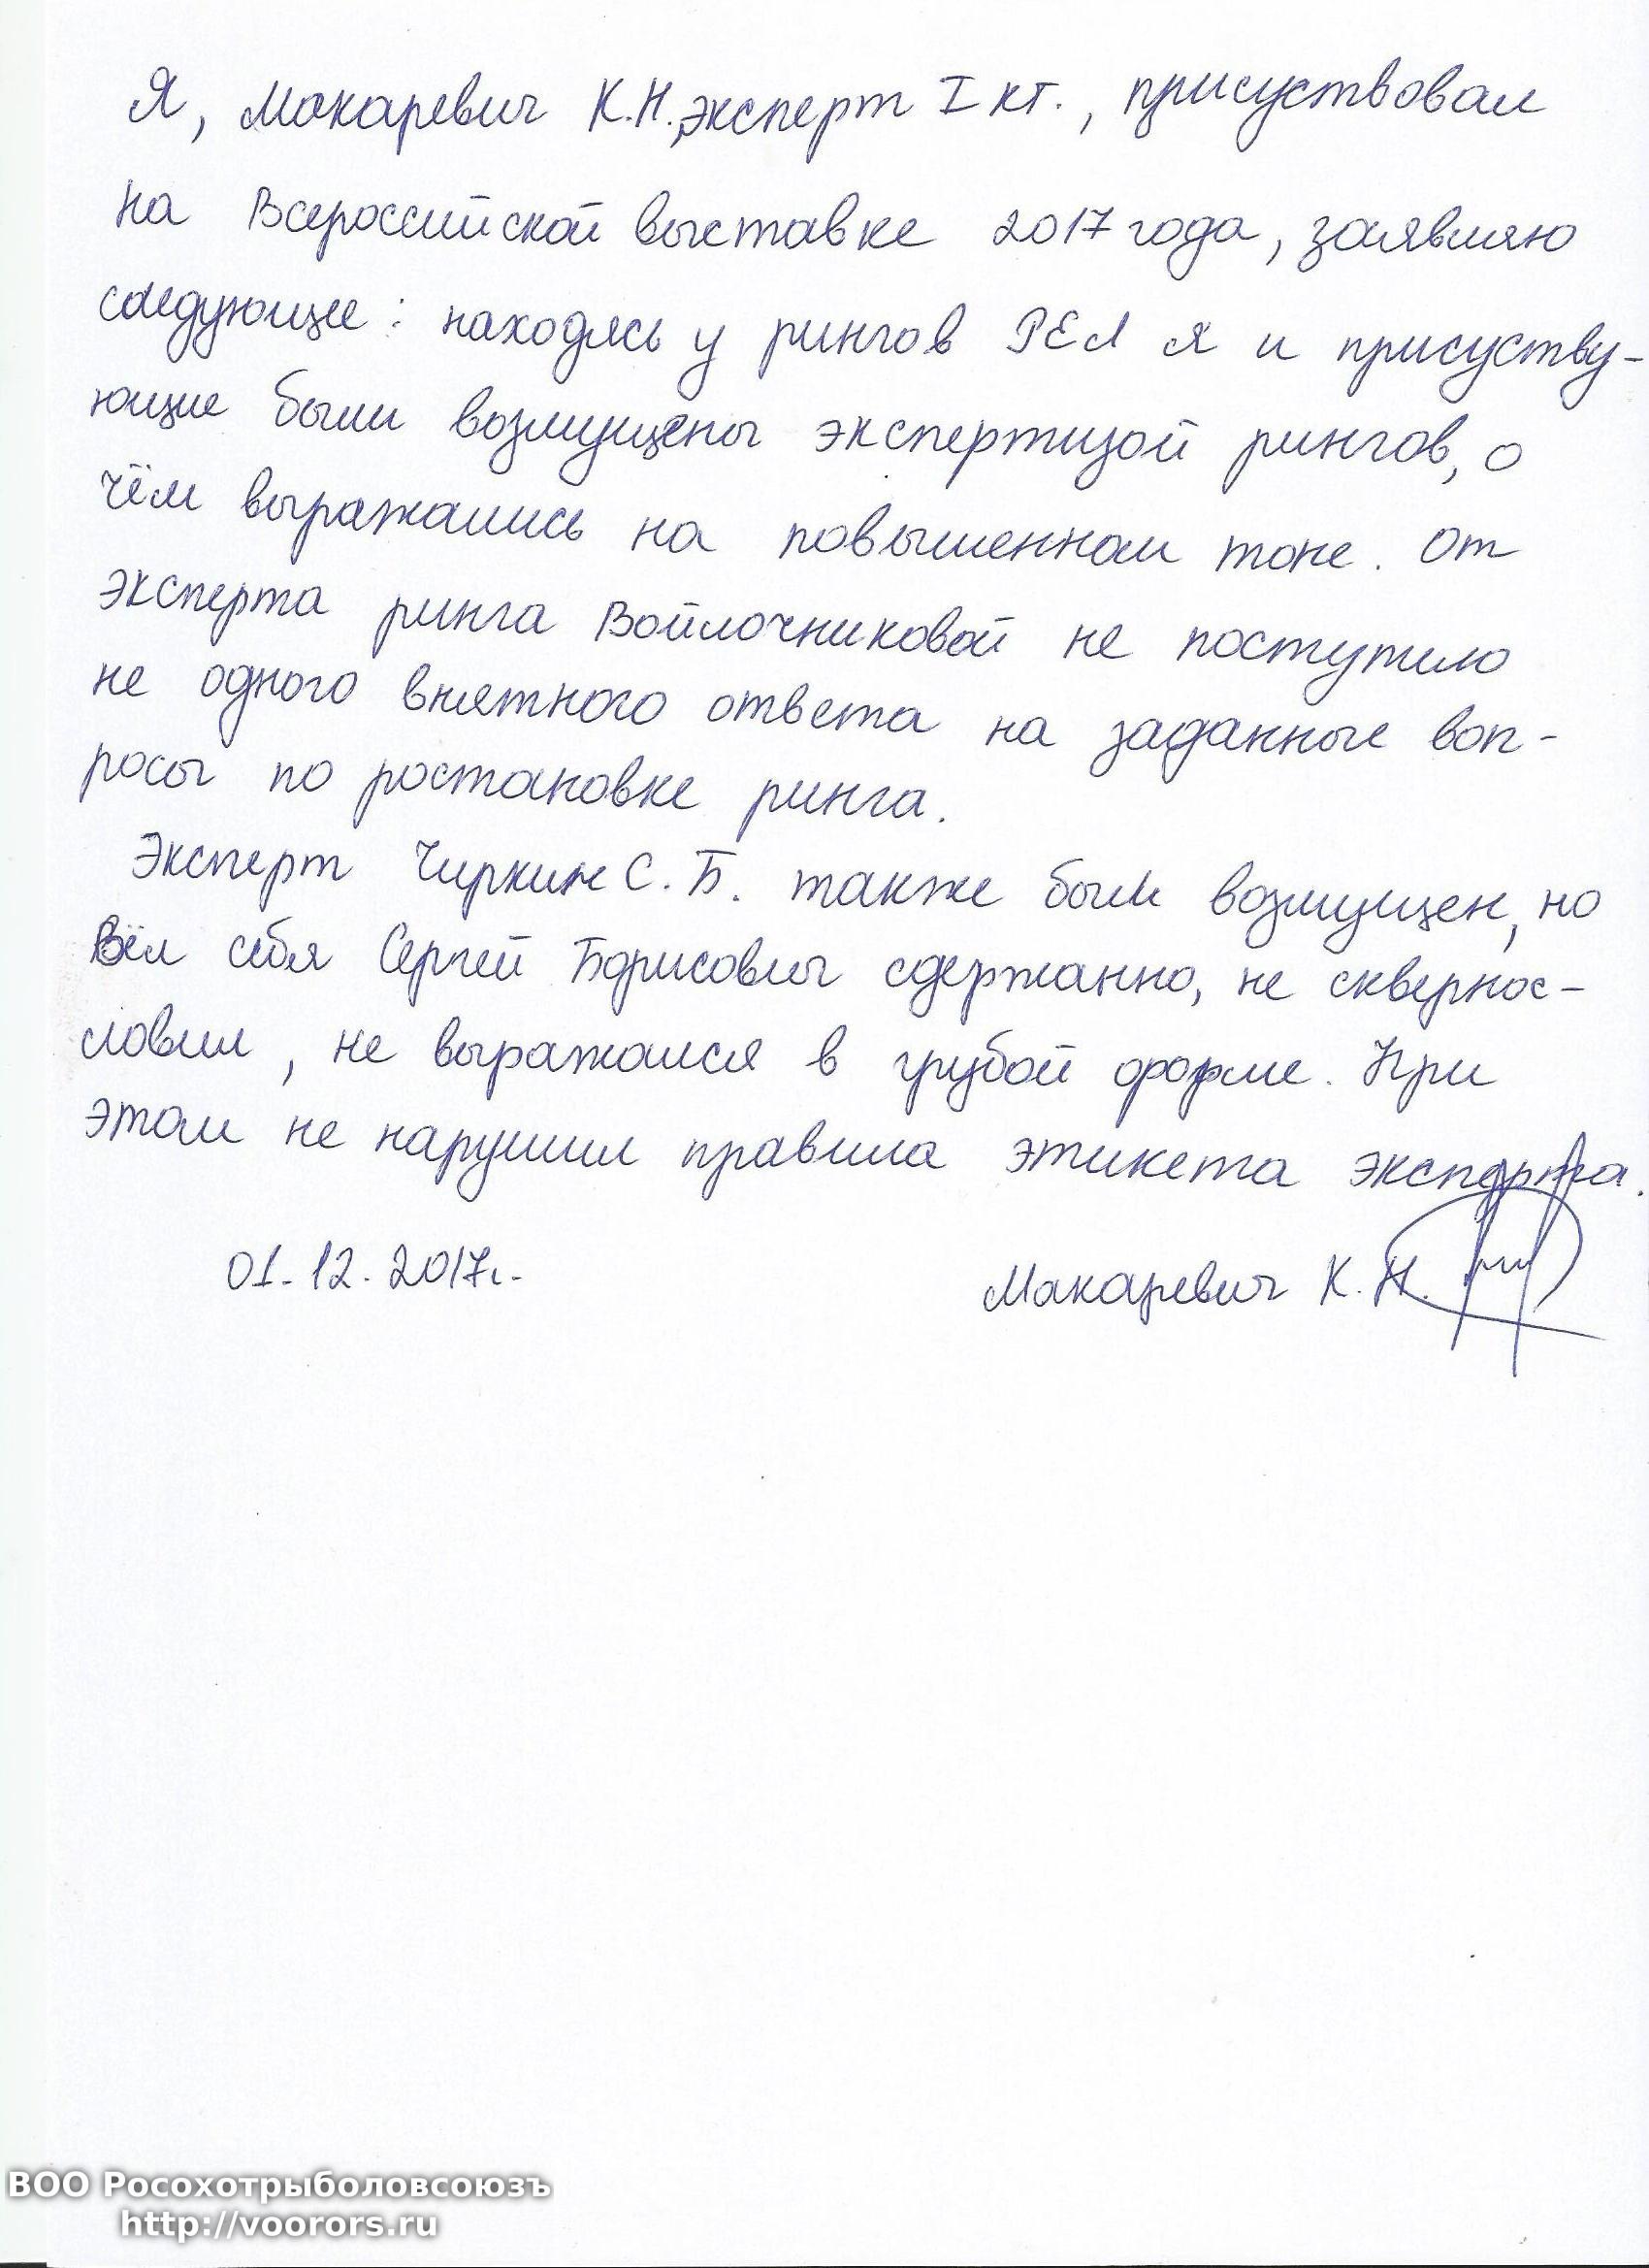 Я, Макаревич К.Н., эксперт I кт., присуствовал
на Всероссийской выставке 2017 года, заявляю
следующее: находясь у рингов РЕЛ я и присуству-
ющие были возмущены экспертизой рингов, о
чём выражались на повышенном тоне. От
эксперта ринга Войлочниковой не поступило
не одного внятного ответа на заданные воп-
росы по ростановке ринга.
Эксперт Чиркин С.Б. также был возмущен, но
Вёл себя Сергей Борисович сдержанно, не сквернос-
ловил, не выражался в грубой форме. При
этом не нарушил правила этикета эксперта.
01.12.2017г.
Макаревич К.Н.
ВОО Росохотрыболовсоюзъ
http://voorors.ru